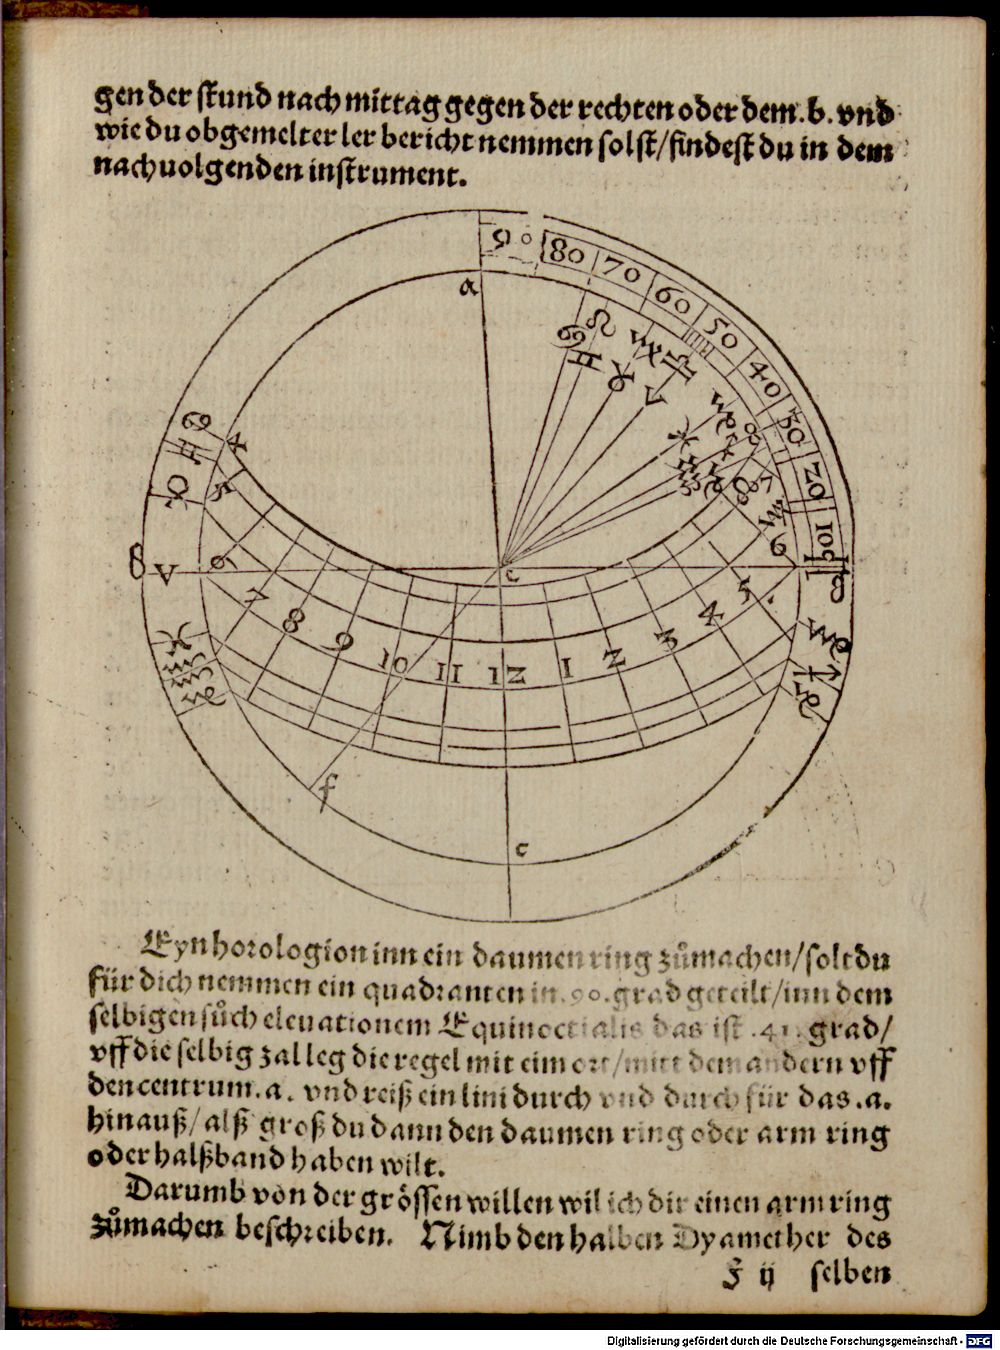 gen der stund nach mittag gegen der rechten oder dem .b. vnd
wie du obgemelter ler bericht nemmen solst/findest du in dem
nachuolgenden instrument.
9 0 80 70 60 50 40 30 20 10
a
♋ ♌ ♊ ♍ ♉ ♎ ♈
♏ ♓ ♐ ♒ ♑
♋ ♊ ♉ ♈ ♓ ♒ ♑
4 5 6 7 8 9 10 11 12 1 2 3 4 5 6
e
f
c
♏ ♐ ♑
Eyn horologion inn ein daumen ring zůmachen/solt du
für dich nemmen ein quadranten in .90. grad geteilt/inn dem
selbigen sůch eleuationem Equinoctialis das ist .41. grad/
vff die selbig zal leg die regel mit eim ort/mitt dem andern vff
den centrum .a. vnd reiß ein lini durch vnd durch für das .a.
hinauß/ alß groß du dann den daumen ring oder arm ring
oder halßband haben wilt.
Darumb von der grössen willen wil ich dir einen arm ring
zůmachen beschreiben. Nimb den halben Dyamether des
F ij selben
Digitalisierung gefördert durch die Deutsche Forschungsgemeinschaft - DFG